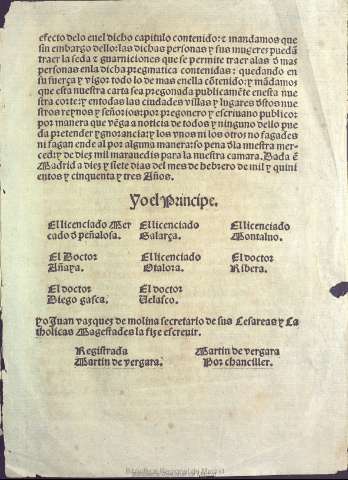 efecto delo enel dicho capitulo contenido: z mandamos que
sin embargo dello: las dichas personas y sus mugeres puedā
traer la seda z guarniciones que se permite traer alas õ mas
personas enla dicha pregmatica contenidas: quedando en
su fuerça y vigor todo lo de mas enella cōtenido: y mādamos
que esta nuestra carta sea pregonada publicamēte enesta nue
stra corte: y entodas las ciudades villas y lugares ðstos nue
stros reynos y señorios: por pregonero y escriuano publico:
por manera que vēga a noticia de todos y ninguno dello pue
da pretender ygnorancia: y los vnos ni los otros no fagades
ni fagan ende al por alguna manera: so pena ðla nuestra mer
ced: y de diez mil marauedis para la nuestra camara. Dada ē
Madrid a diez y siete dias del mes de hebrero de mil y quini
entos y cinquenta y tres Años.
Yo el Principe.
El licenciado Mer El licenciado El licenciado
cado ð peñalosa. Galarça. Montaluo.
El Doctor El licenciado El doctor
Añaya. Otalora. Ribera.
El doctor El doctor
Diego gasca. Uelasco.
yo Juan vazquez de molina secretario de sus Cesareas y Ca
tholicas Magestades la fize escreuir.
Registrada Martin de vergara
Martin de vergara. Por chanciller.
Biblioteca Nacional de Madrid